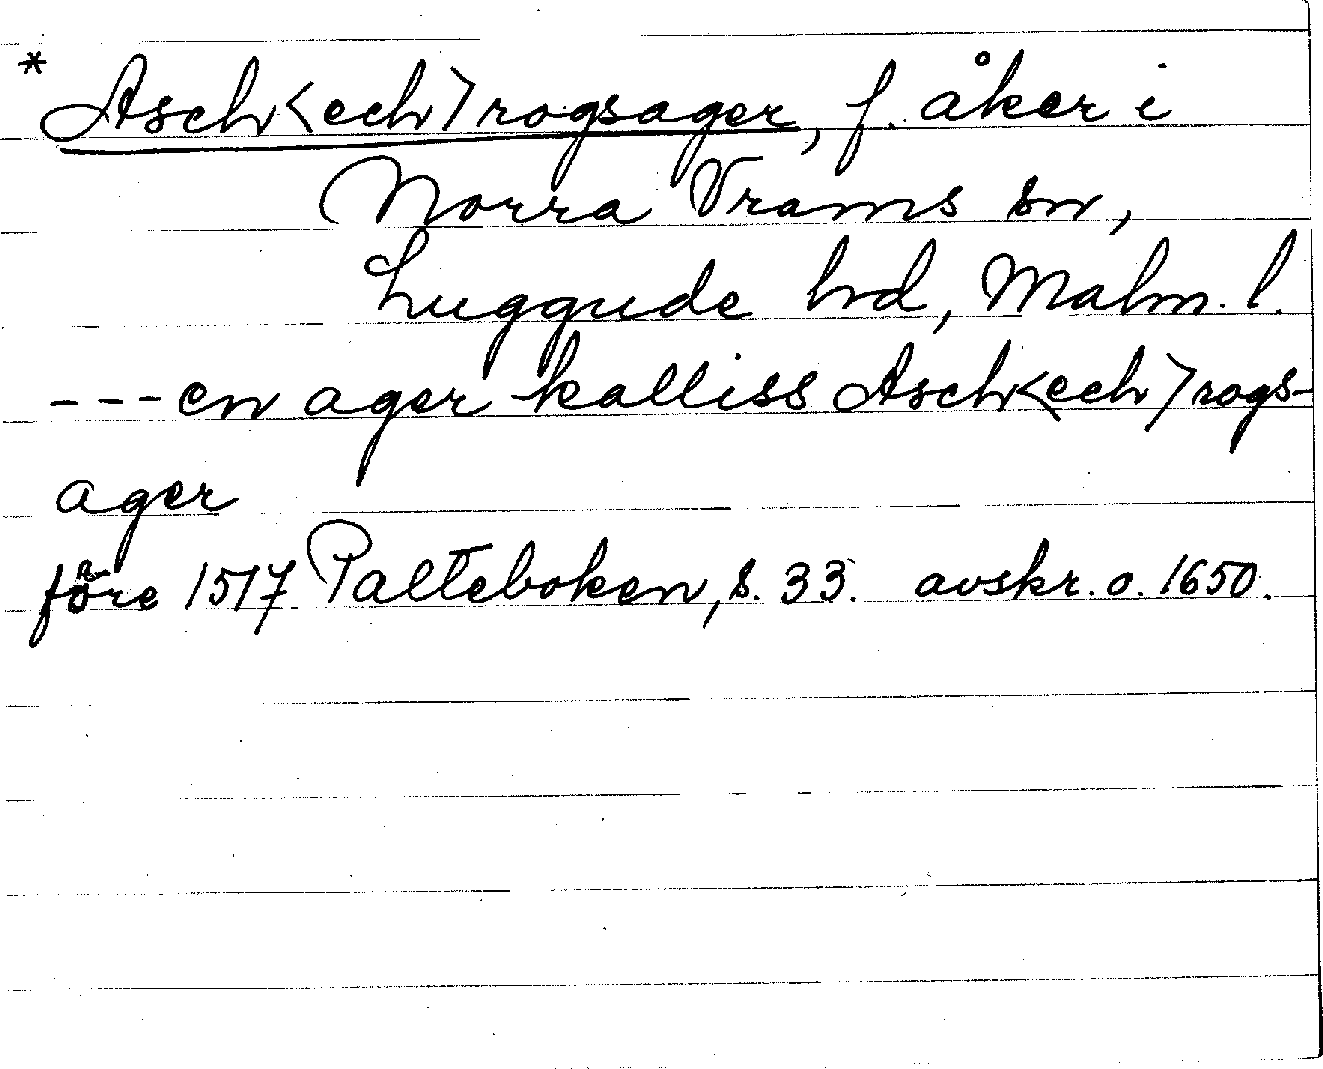 * Asch<ech>rogsager, f. åker i
Norra Vrams sn,
Luggude hd, Malm. l.
---en ager kalliss Asch<ech>rogs-
ager
före 1517 Palteboken, s. 33. avskr. o. 1650.